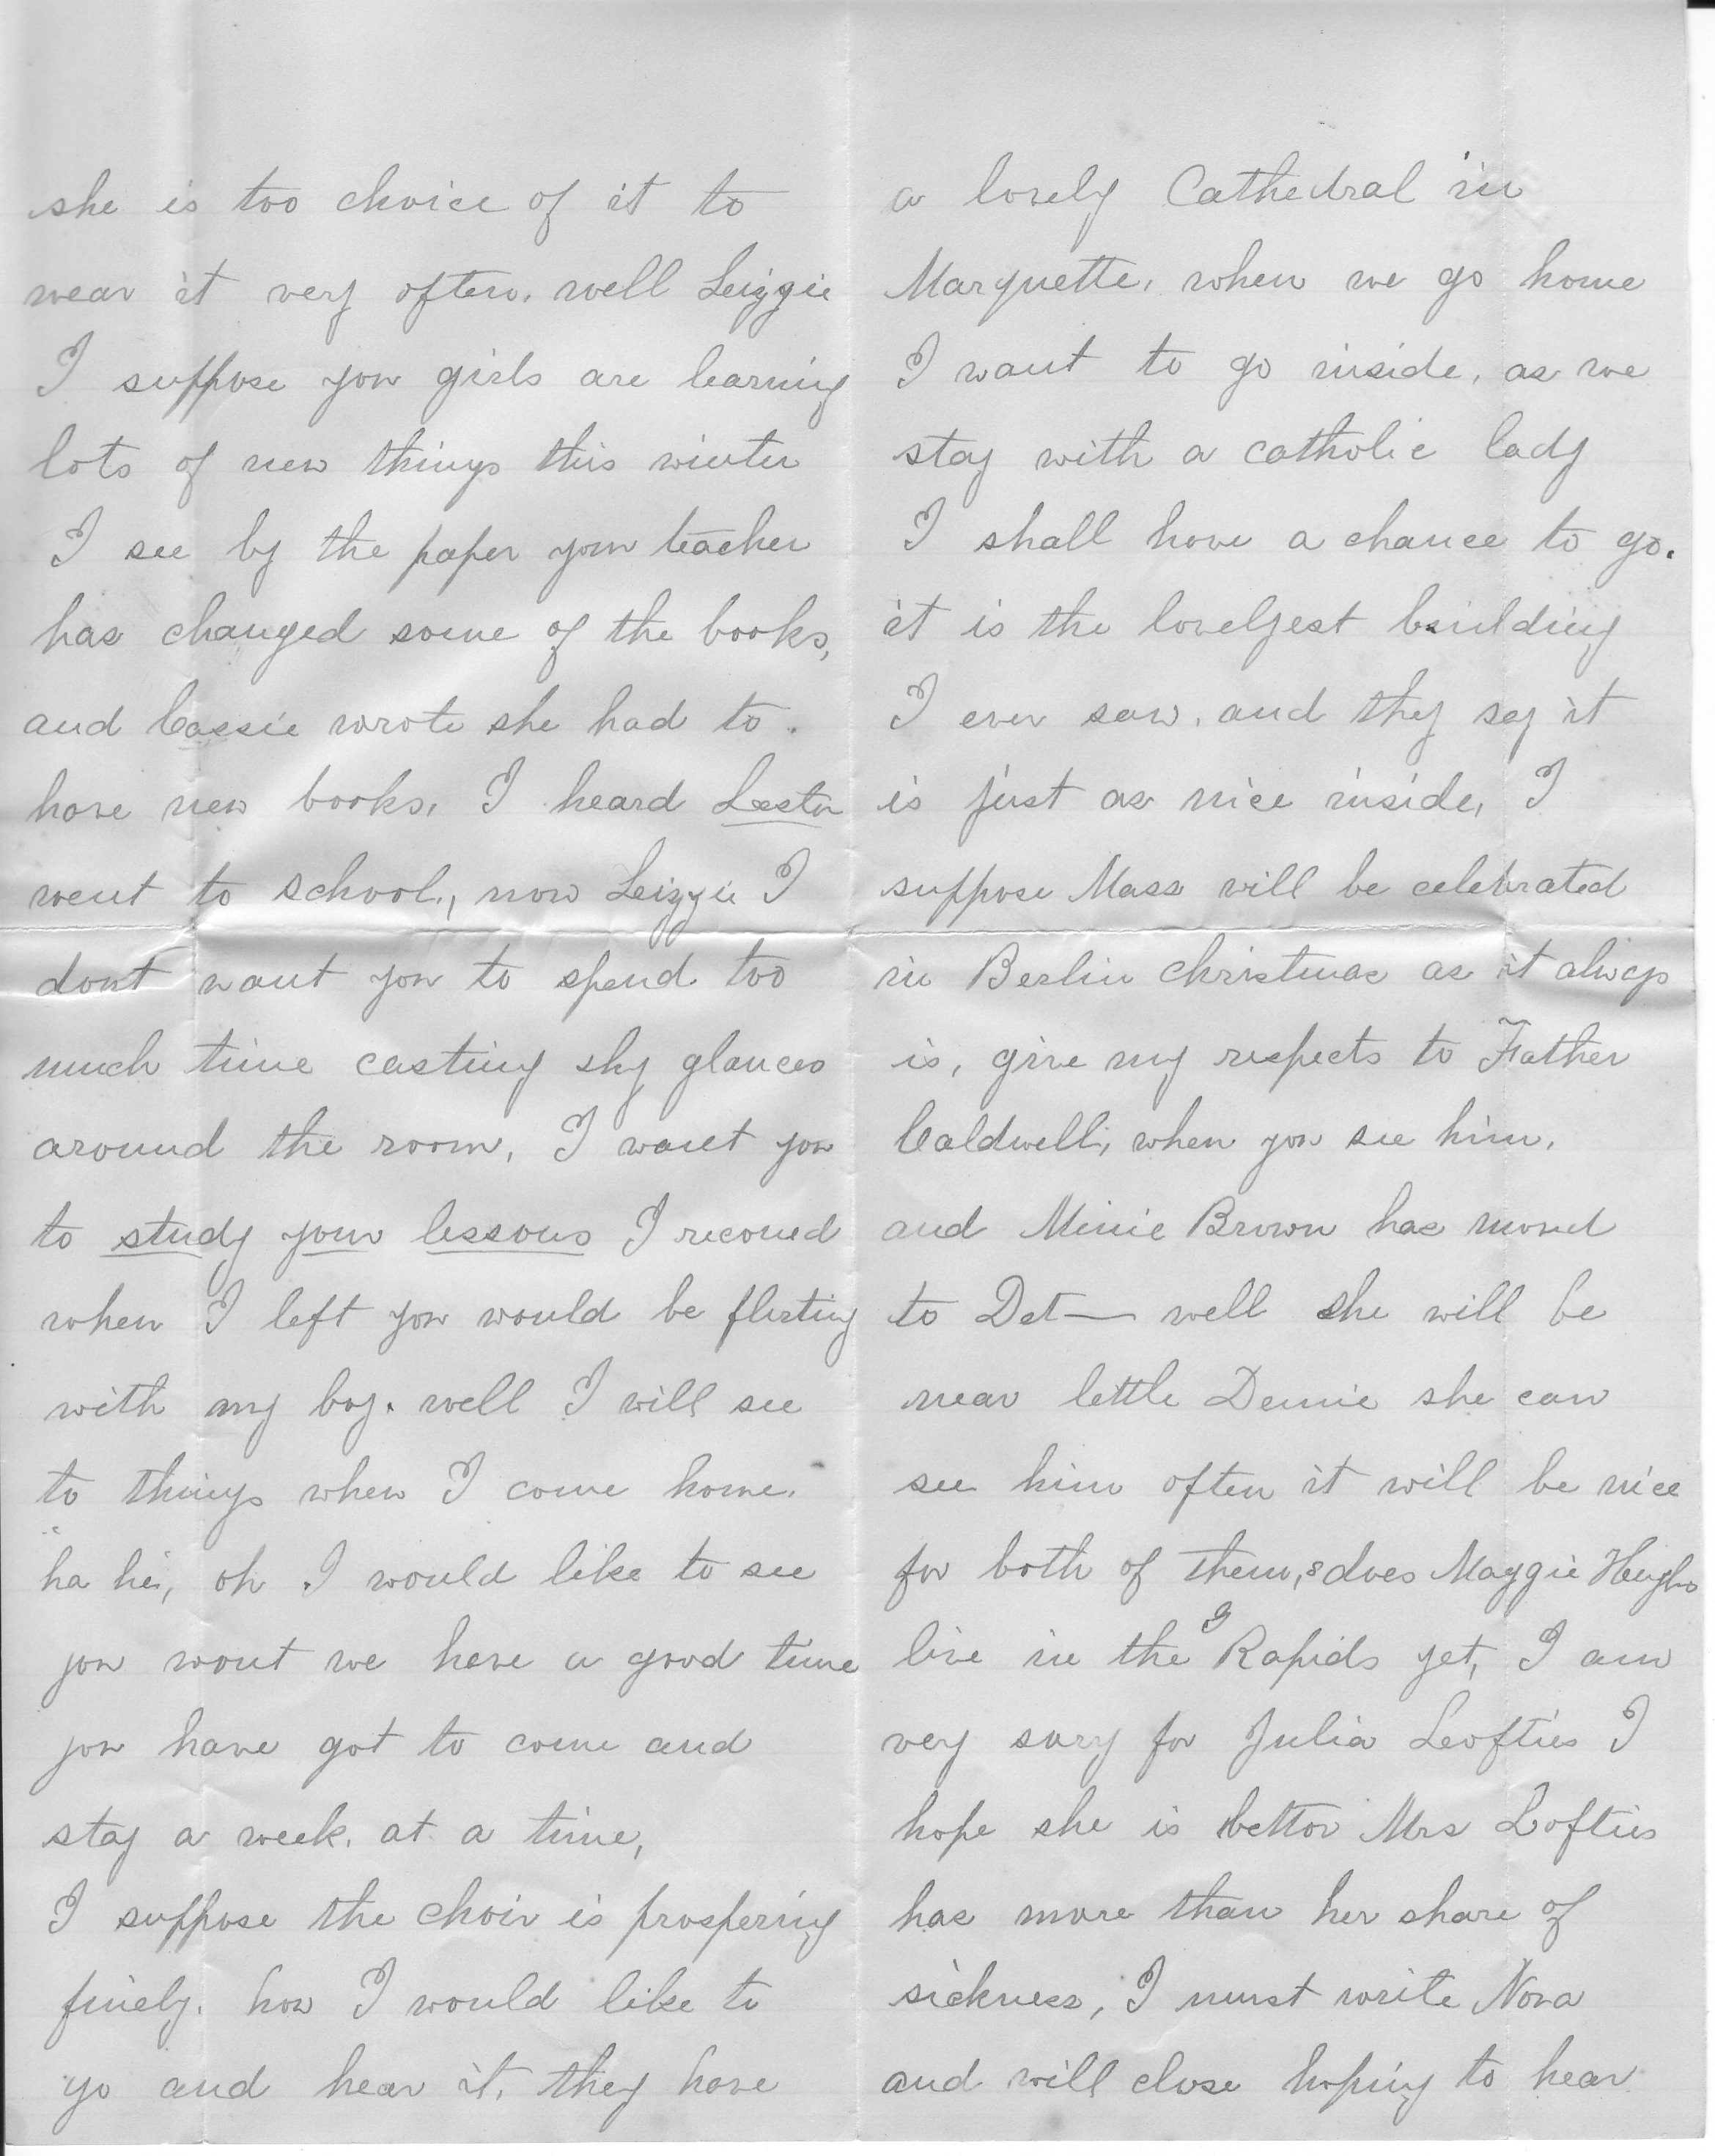 she is too choice of it to
wear it very often. well Leizzie
I suppose you girls are learning
lots of new things this winter
I see by the paper your teacher
has changed some of the books,
and Cassie wrote she had to.
have new books. I heard Lester
went to school, now Leizzie I
dont want you to spend too
much time casting shy glances
around the room, I want you
to study your lessons I reconed
when I left you would be flirting
with my boy. well I will see
to things when I come home.
ha ha, oh I would like to see
you wont we have a good time
you have got to come and
stay a week. at a time,
I suppose the choir is prospering
finely. how I would like to
go and hear it, they have
a lovely Cathedral in
Marquette, when we go home
I want to go inside, as we
stay with a catholic lady
I shall have a chance to go.
it is the lovelyest building
I ever saw, and they say it
is just as nice inside, I
suppose Mass will be celebrated
in Berlin christmas as it always
is, give my respects to Father
Caldwell, when you see him.
and Minie Brown has moved
to Det— well she will be
near little Dennie she can
see him often it will be nice
for both of them, & does Maggie Hughs
live in the G Rapids yet, I am
very sory for Julia Leofties I
hope she is bettor Mrs Lofties
has more than her share of
sickness, I must write Nora
and will close hoping to hear